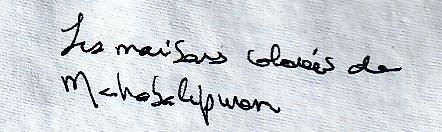 Les maisons colorées de
Mahabalipuram